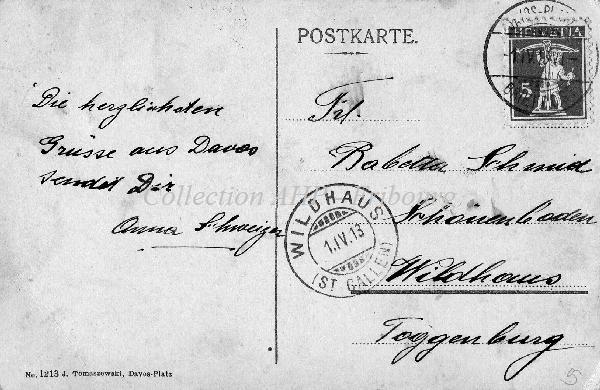 POSTKARTE.
HELVETIA
5
Die herzlichsten
Grüsse aus Davos
sendet Dir
Anna Schweizer
Frl.
Babetta Schmid
Schönenboden
Wildhaus
Toggenburg
WILDHAUS
1.IV.13
(ST. GALLEN)
No. 1213 J. Tomaszewski, Davos-Platz
5